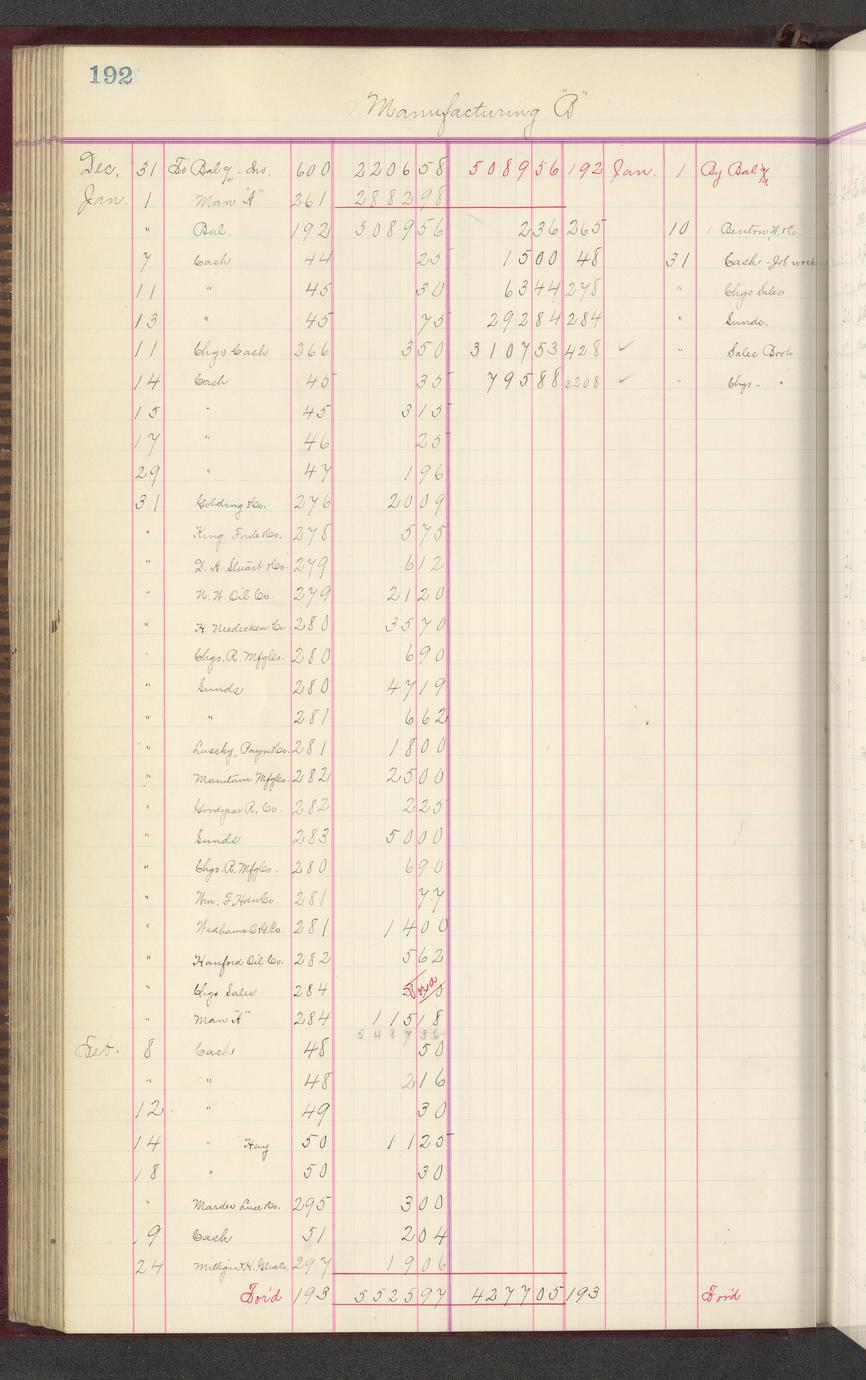 192
Manufacturing "B"
Dec. 31 To Baly - Inv. 600 2206 58 5089 56 192 Jan. 1 By Baly
Jan. 1 Man "A" 261 2882 98
" Bal. 192 5089 56 2 36 265 10 Benton, W. & Co.
7 Cash 44 25 15 00 48 31 Cash - Job work
11 " 45 30 63 44 278 " Chgo Sales
13 " 45 75 292 84 284 " Sunds.
11 Chgo Cash 266 3 50 3107 53 428 ✓ " Sales Book
14 Cash 45 35 795 88 208 ✓ " Chgo - "
15 " 45 3 15
17 " 46 25
29 " 47 1 96
31 Golding & Co. 276 20 09
" King, & Co. 278 5 75
" D. A. Stuart & Co. 279 6 12
" N. W. Oil Co. 279 21 20
" H. Niedecken Co. 280 35 70
" Chgo. R. Mfg Co. 280 6 90
" Sunds 280 47 19
" " 281 6 62
" Lussky, Payn & Co. 281 18 00
" Manitowoc Mfg Co. 282 25 00
" Goodyear R. Co. 282 2 25
" Sunds 283 50 00
" Chgo. R. Mfg Co. 280 6 90
" Wm. F. Co. 281 77
" Wadhams O. & G. Co. 281 14 00
" Hanford Oil Co. 282 5 62
" Chgo Sales 284
" Man "A" 284 115 18
5487 36
Feb. 8 Cash 48 50
" " 48 2 16
12 " 49 30
14 " Hay 50 11 25
18 " 50 30
" Marder Luse & Co. 295 3 00
19 Cash 51 2 04
24 Milligan & H. Glue Co. 297 19 06
For'd 193 5525 97 4277 05 193 For'd